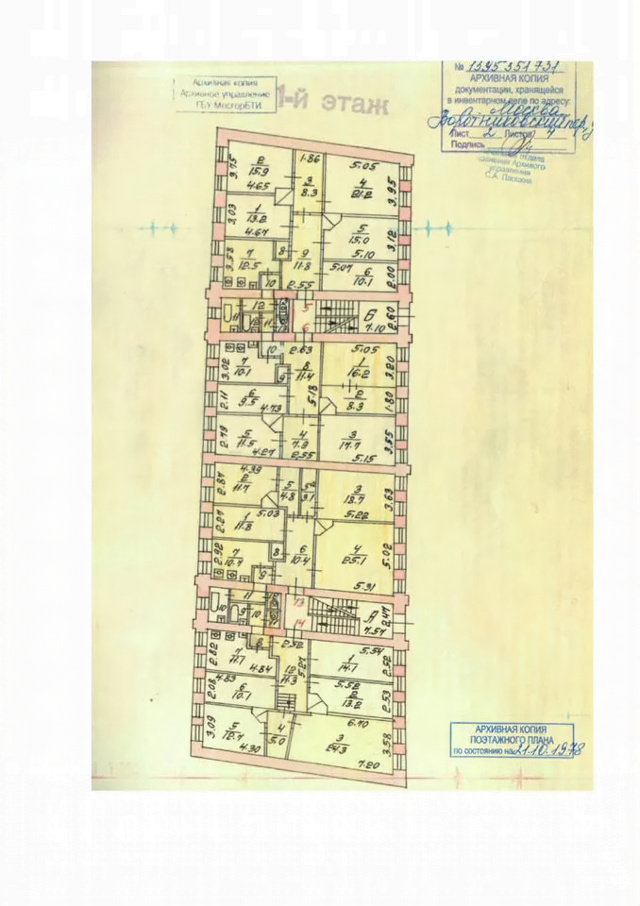 Архивная копия
Архивное управление
ГБУ МосгорБТИ
1-й этаж
№ 1395351731
АРХИВНАЯ КОПИЯ
документации, хранящейся
в инвентарном деле по адресу:
г. Москва
Воротниковский пер.
Лист 2 Листов 4
Подпись
архивного отдела
Архивного
управления
3.75
2
15.9
4.65
1.86
3
8.3
5.05
4
21.2
3.95
3.03
1
13.2
4.67
5
15.0
5.10
3.12
3.53
7
12.5
8
9
11.8
5.07
6
10.1
2.00
10
2.55
11
12
5
6
Б
7.10
2.60
3.02
7
10.1
10
2.63
8
11.4
5.05
1
16.2
3.20
9
5.18
2
8.3
1.80
2.11
6
9.5
4.73
2.79
5
11.5
4.27
4
7.9
2.55
3
17.7
5.15
3.55
4.39
2.87
2
11.7
5
4.8
2
3.1
3
18.7
5.22
3.63
5.03
2.27
1
11.8
2.92
7
10.7
8
9
6
10.4
4
25.1
5.31
5.02
10
11
9
10
13
14
А
7.57
2.47
2.82
7
11.1
4.84
8
2.52
5.27
12
11.3
5.54
1
14.1
2.52
4.83
2.08
6
10.1
5.52
2
13.2
2.53
3.09
5
12.7
4.30
4
5.0
6.70
3
24.3
7.20
3.58
АРХИВНАЯ КОПИЯ
ПОЭТАЖНОГО ПЛАНА
по состоянию на 21.10.1978